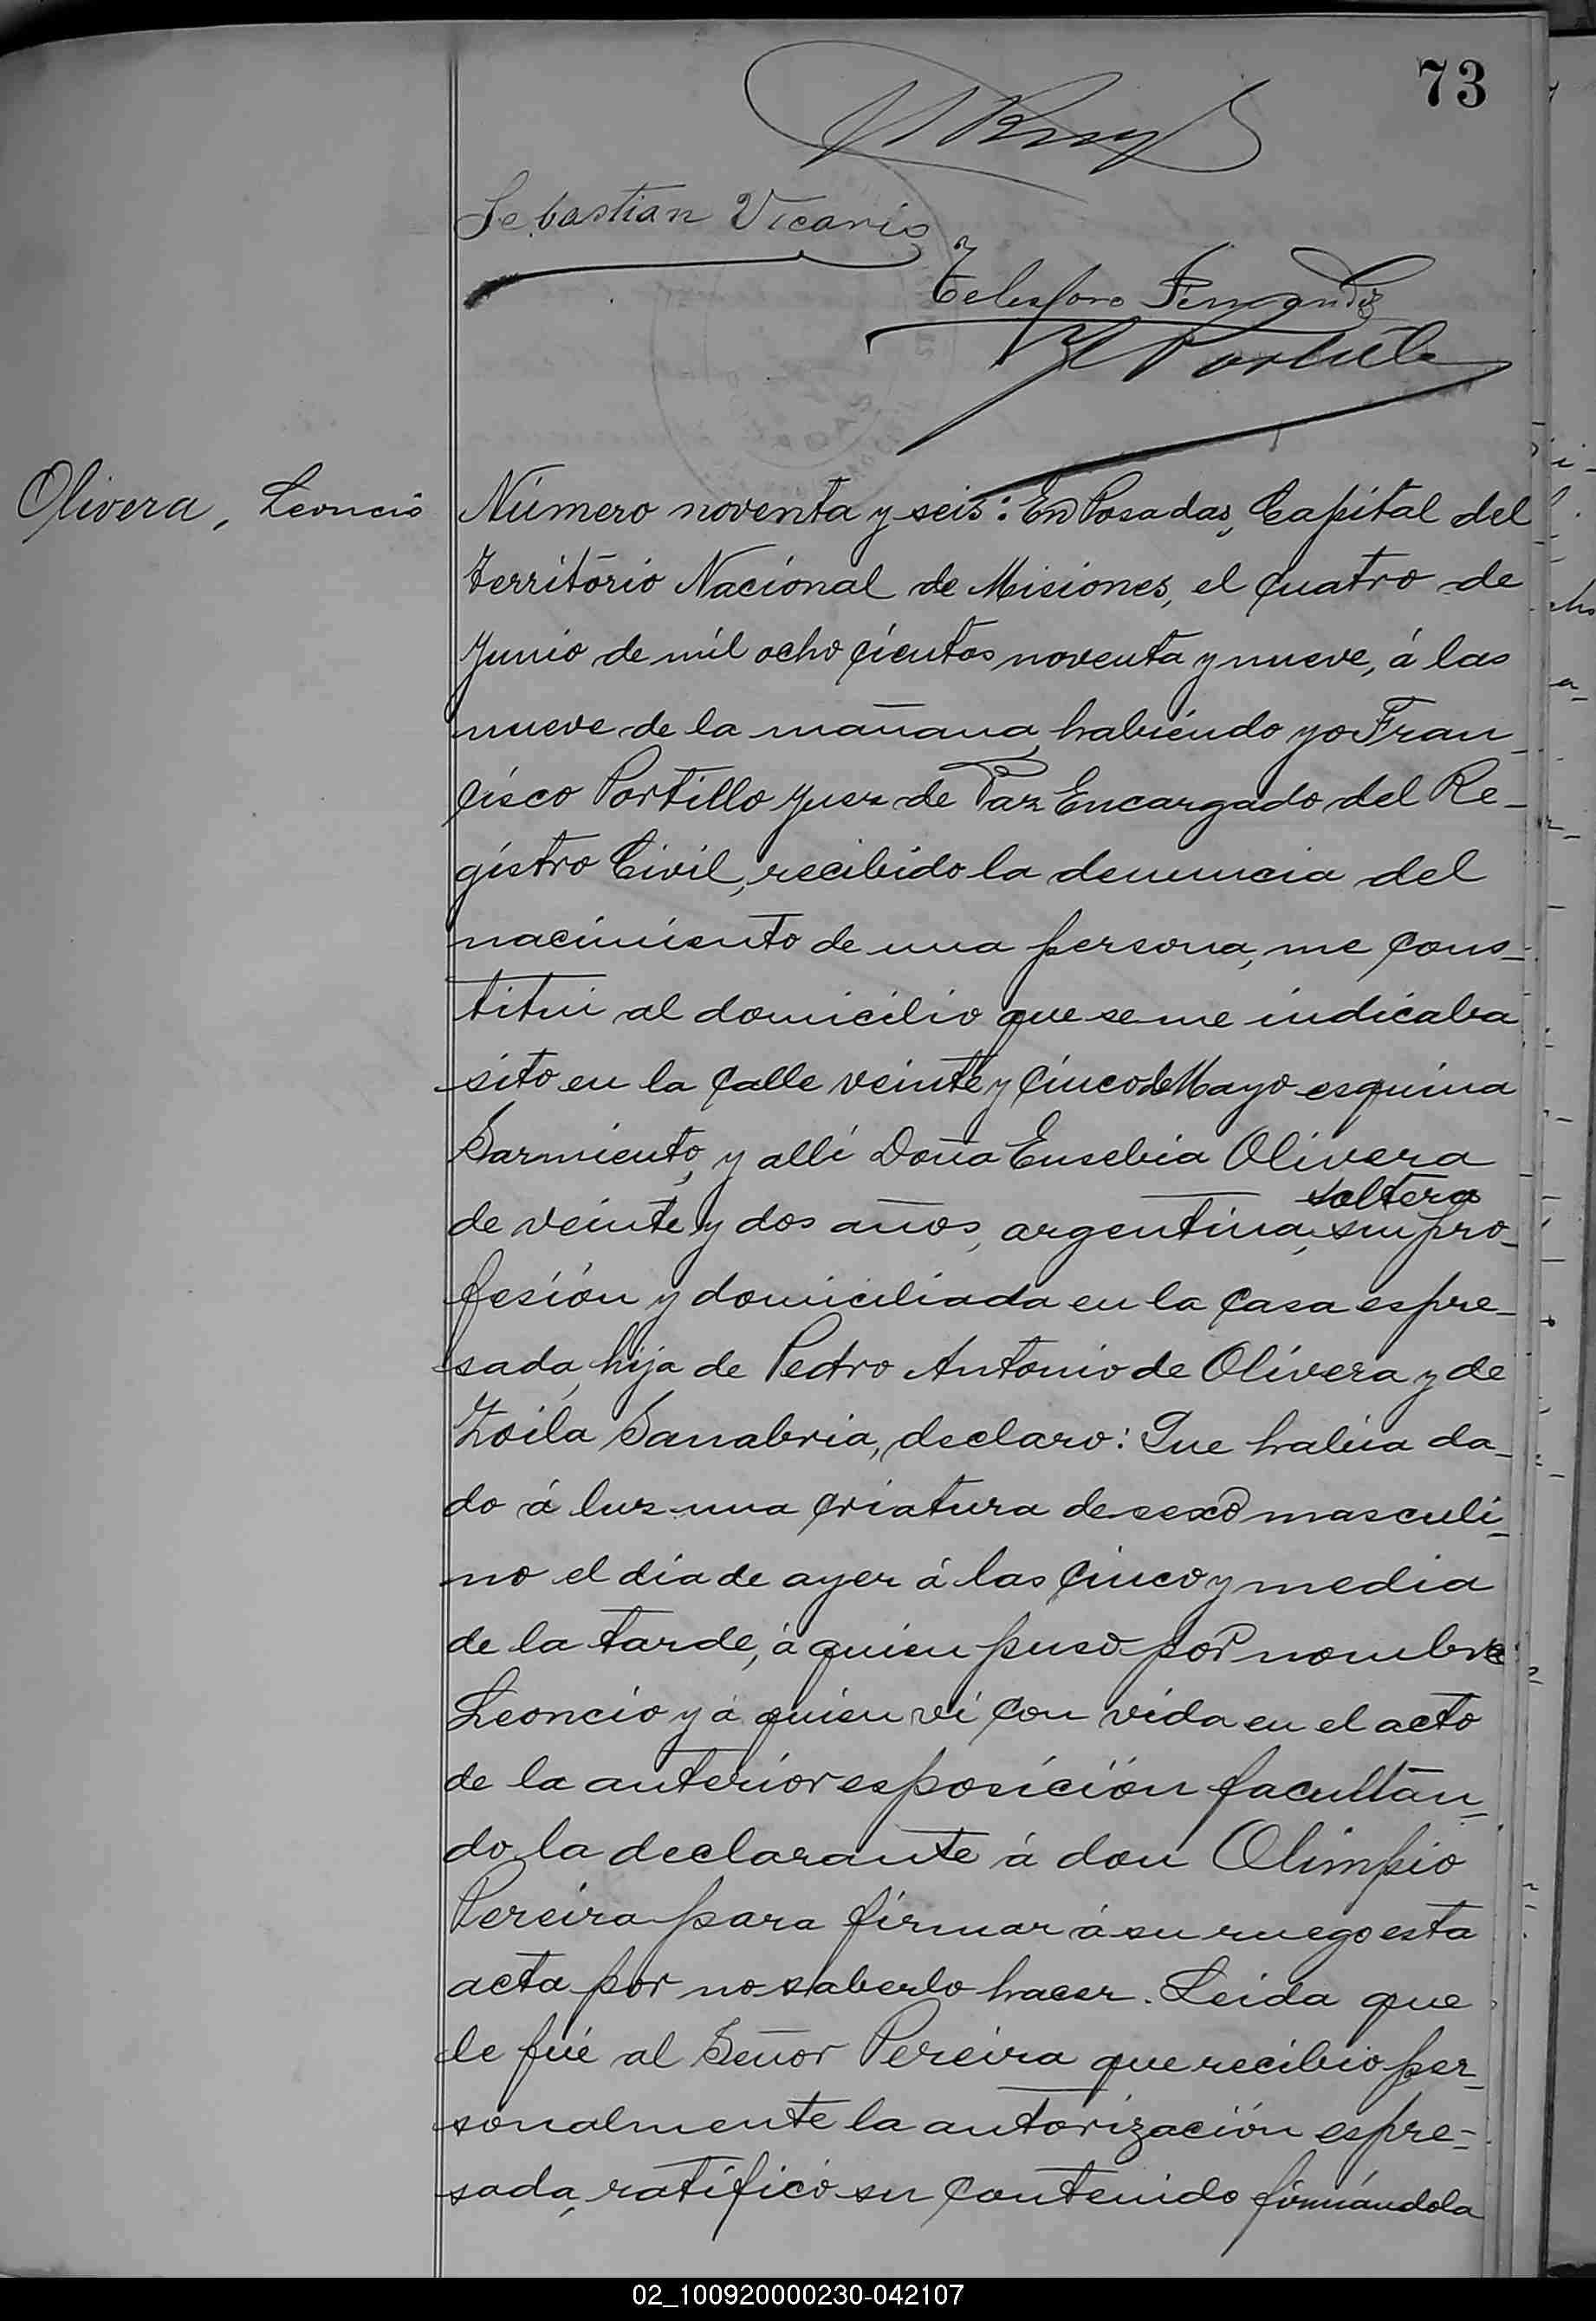 73
Sebastian Vicario
Telesforo Fernandez
Olivera, Leoncio
Número noventa y seis: En Posadas, Capital del
Territorio Nacional de Misiones, el cuatro de
Junio de mil ocho cientos noventa y nueve, á las
nueve de la mañana, habiendo yo Fran-
cisco Portillo Juez de Paz Encargado del Re-
gistro Civil, recibido la denuncia del
nacimiento de una persona, me cons-
titui al domicilio que se me indicaba
sito en la calle veinte y cinco de Mayo esquina
Sarmiento, y alli Doña Eusebia Olivera
soltera
de veinte y dos años, argentina, sin pro-
fesión y domiciliada en la casa espre-
sada, hija de Pedro Antonio de Olivera y de
Zoila Sanabria, declaro: Que habia da-
do á luz una criatura de sexo masculi-
no el dia de ayer á las cinco y media
de la tarde, á quien puso por nombre
Leoncio y á quien ví con vida en el acto
de la anterior esposición facultan-
do la declarante á don Olimpio
Pereira para firmar á su ruego esta
acta por no saberlo hacer. Leida que
le fué al Señor Pereira que recibio per-
sonalmente la autorización espre-
sada, ratificó su contenido firmándola
02_100920000230-042107